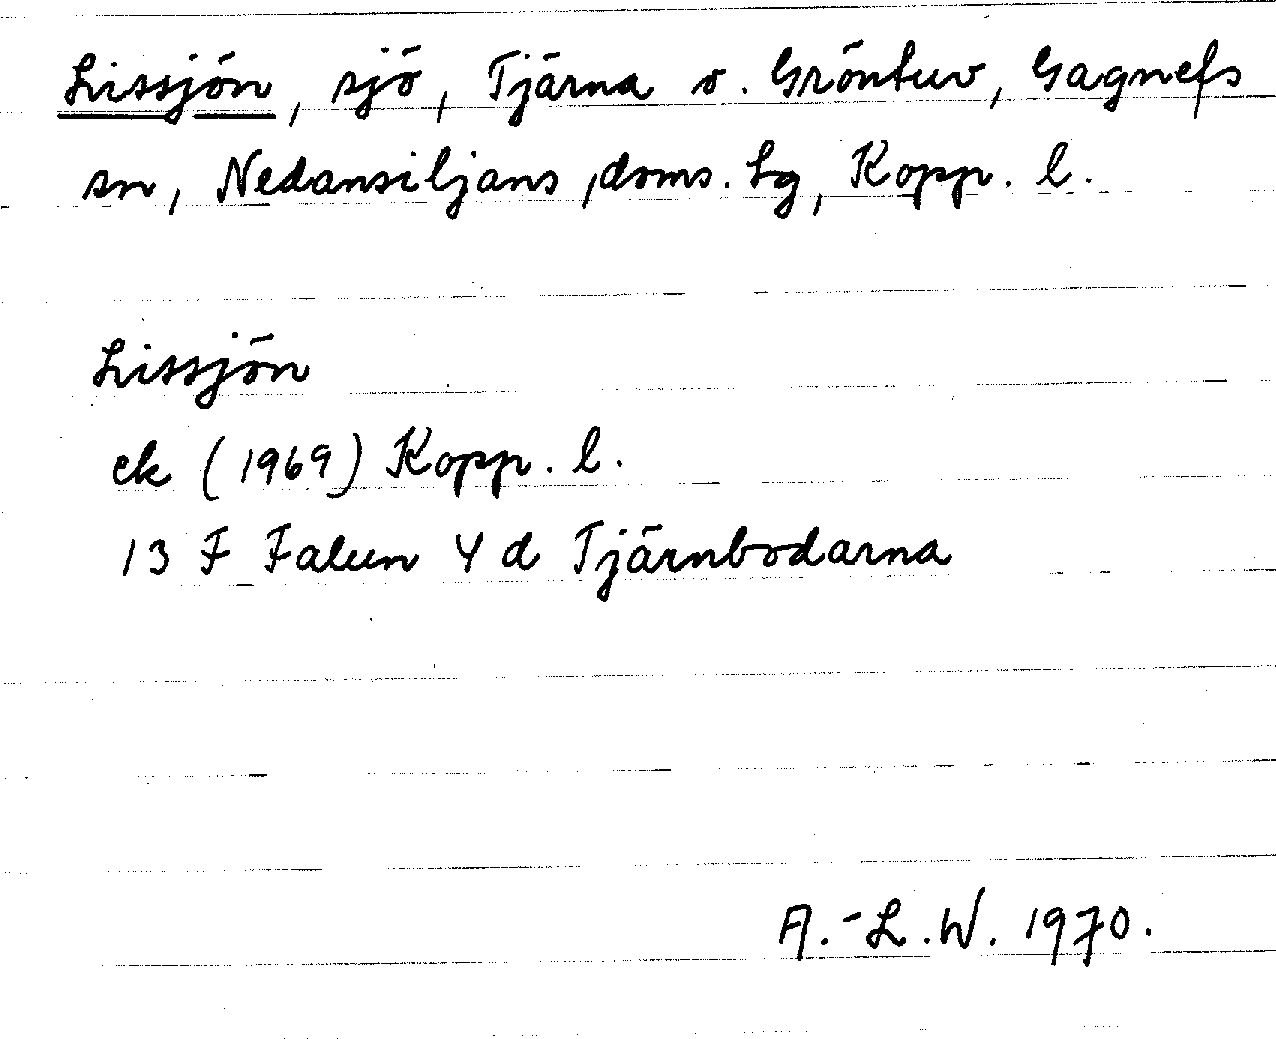 Lissjön, sjö, Tjärna o. Gröntuv, Gagnefs
sn, Nedansiljans doms. lg, Kopp. l.
Lissjön
ek (1969) Kopp. l.
13 F Falun 4 d Tjärnbodarna
A.-L.W. 1970.